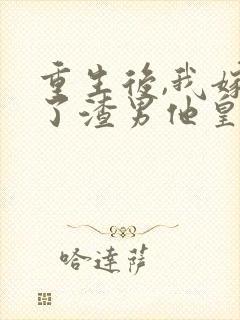 重生後,我嫁
了渣男他皇
哈達薩